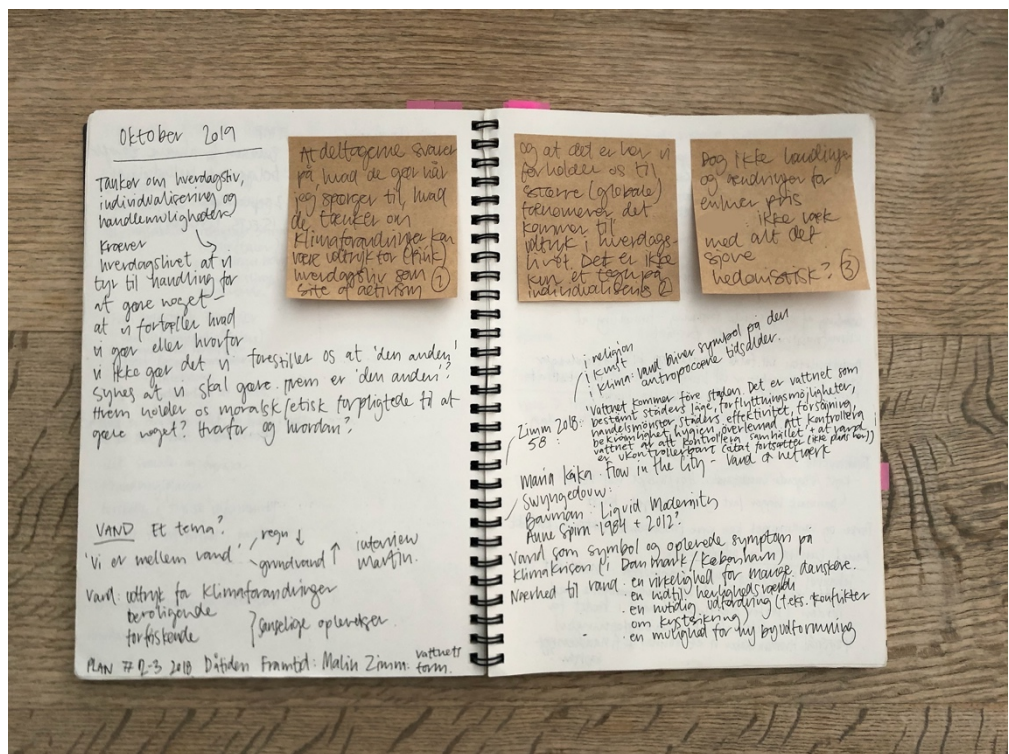 Oktober 2019
Tanker om hverdagsliv,
individualisering og
handlemuligheder
Kræver
hverdagslivet at vi
tyr til handling for
at gøre noget -
at vi fortæller hvad
vi gør eller hvorfor
vi ikke gør det vi forestiller os at 'den anden'
synes at vi skal gøre. Hvem er 'den anden'?
Hvem holder os moralsk/etisk forpligtede til at
gøre noget? Hvorfor og hvordan?
At deltagerne svarer
på, hvad de gør når
jeg spørger til, hvad
de tænker om
klimaforandringer kan
være udtryk for (Pink)
hverdagsliv som
site of activism 1
VAND Et tema?
'Vi er mellem vand'
regn ↓
grundvand ↑
interview
Martin.
Vand: udtryk for klimaforandringer
beroligende
forfriskende
sanselige oplevelser
PLAN 77 2-3 2018 Dåtiden Framtid: Malin Zimm. vattnets
form.
og at det er her vi
forholder os til
større (globale)
fænomener det
kommer til
udtryk i hverdags-
livet. Det er ikke
kun et tegn på
individualisering 2
Dog ikke handlinger
og ændringer for
enhver pris
ikke væk
med alt det
sjove
hedonistisk? 3
i religion
i kunst
i klima: vand bliver symbol på den
antropocæne tidsalder.
Zimm 2018:
58:
'Vattnet kommer före staden. Det er vattnet som
bestämt städers läge, förflyttningsmöjligheter,
handelsmönster, städers effektivitet, försörjning,
bekvämlighet hygien överlevnad Att kontrollera
vattnet är att kontrollera samhället' + at vand
er ukontrollerbart (citat fortsætter (ikke plads her))
Maria Kaika. Flow in the City - Vand & netværk
Swyngedouw:
Bauman: Liquid Modernity
Anne Spirn 1984 + 2012?
Vand som symbol og oplevede symptom på
klimakrisen (i Danmark/København)
Nærhed til vand. en virkelighed for mange danskere.
en hidtil herlighedsværdi
en nutidig udfordring (f.eks. konflikter
om kystsikring)
en mulighed for ny byudformning